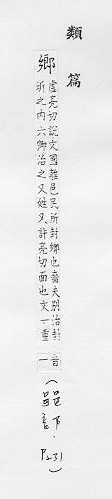 類篇
鄉虛良切說文國離邑民所封鄉也嗇夫別治封
圻之內六鄉治之又姓又許亮切面也文一重一音
(邑部下.
P231)